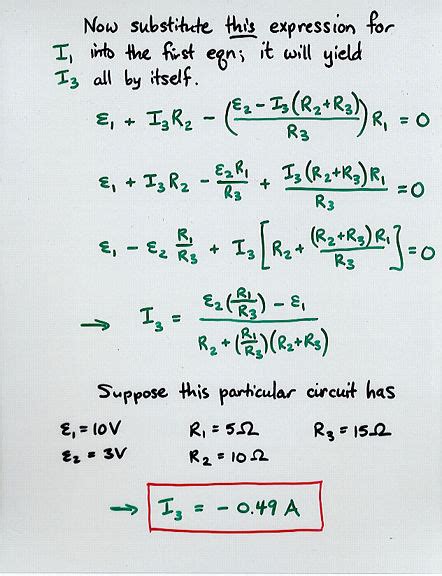 Now substitute this expression for
I₁ into the first eqn; it will yield
I₃ all by itself.
ε₁ + I₃R₂ - ((ε₂ - I₃(R₂+R₃))/R₃) R₁ = 0
ε₁ + I₃R₂ - ε₂R₁/R₃ + I₃(R₂+R₃)R₁/R₃ = 0
ε₁ - ε₂ R₁/R₃ + I₃[R₂ + (R₂+R₃)R₁/R₃] = 0
→ I₃ = (ε₂(R₁/R₃) - ε₁)/(R₂ + (R₁/R₃)(R₂+R₃))
Suppose this particular circuit has
ε₁ = 10V R₁ = 5Ω R₃ = 15Ω
ε₂ = 3V R₂ = 10Ω
→ I₃ = - 0.49 A